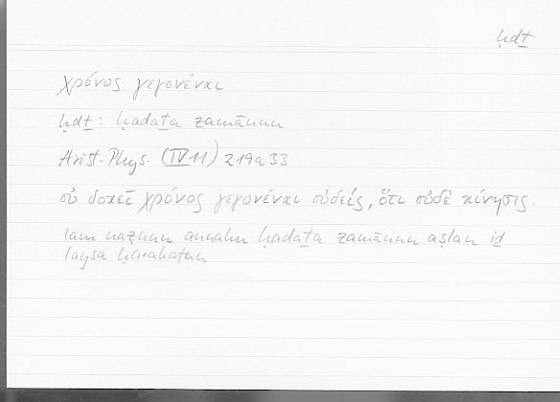 ḥdṯ
χρόνος γεγονέναι
ḥdṯ: ḥadaṯa zamānun
Arist. Phys. (IV 11) 219a33
οὐ δοκεῖ χρόνος γεγονέναι οὐδείς, ὅτι οὐδὲ κίνησις.
lam naẓunn annahu ḥadaṯa zamānun aṣlan iḏ
laysa ḥarakatun